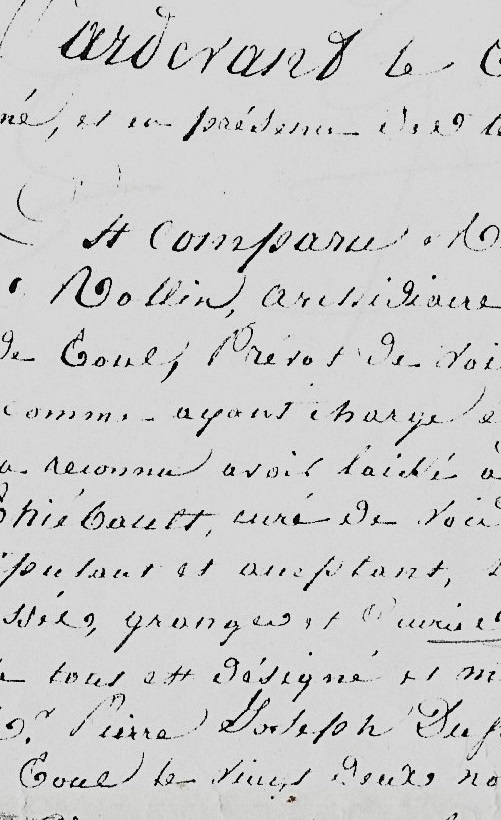 Pardevant le
né, et en présence des
A comparu M
Rollin, archidiacre
de Toul, Prévot de Voi
comme ayant charge e
a reconnu avoir laissé à
Thiébault, curé de Void
ipulant et acceptant,
ssées, granges et
tout est désigné et m
Mr Pierre Joseph Du
Toul le vingt deux no